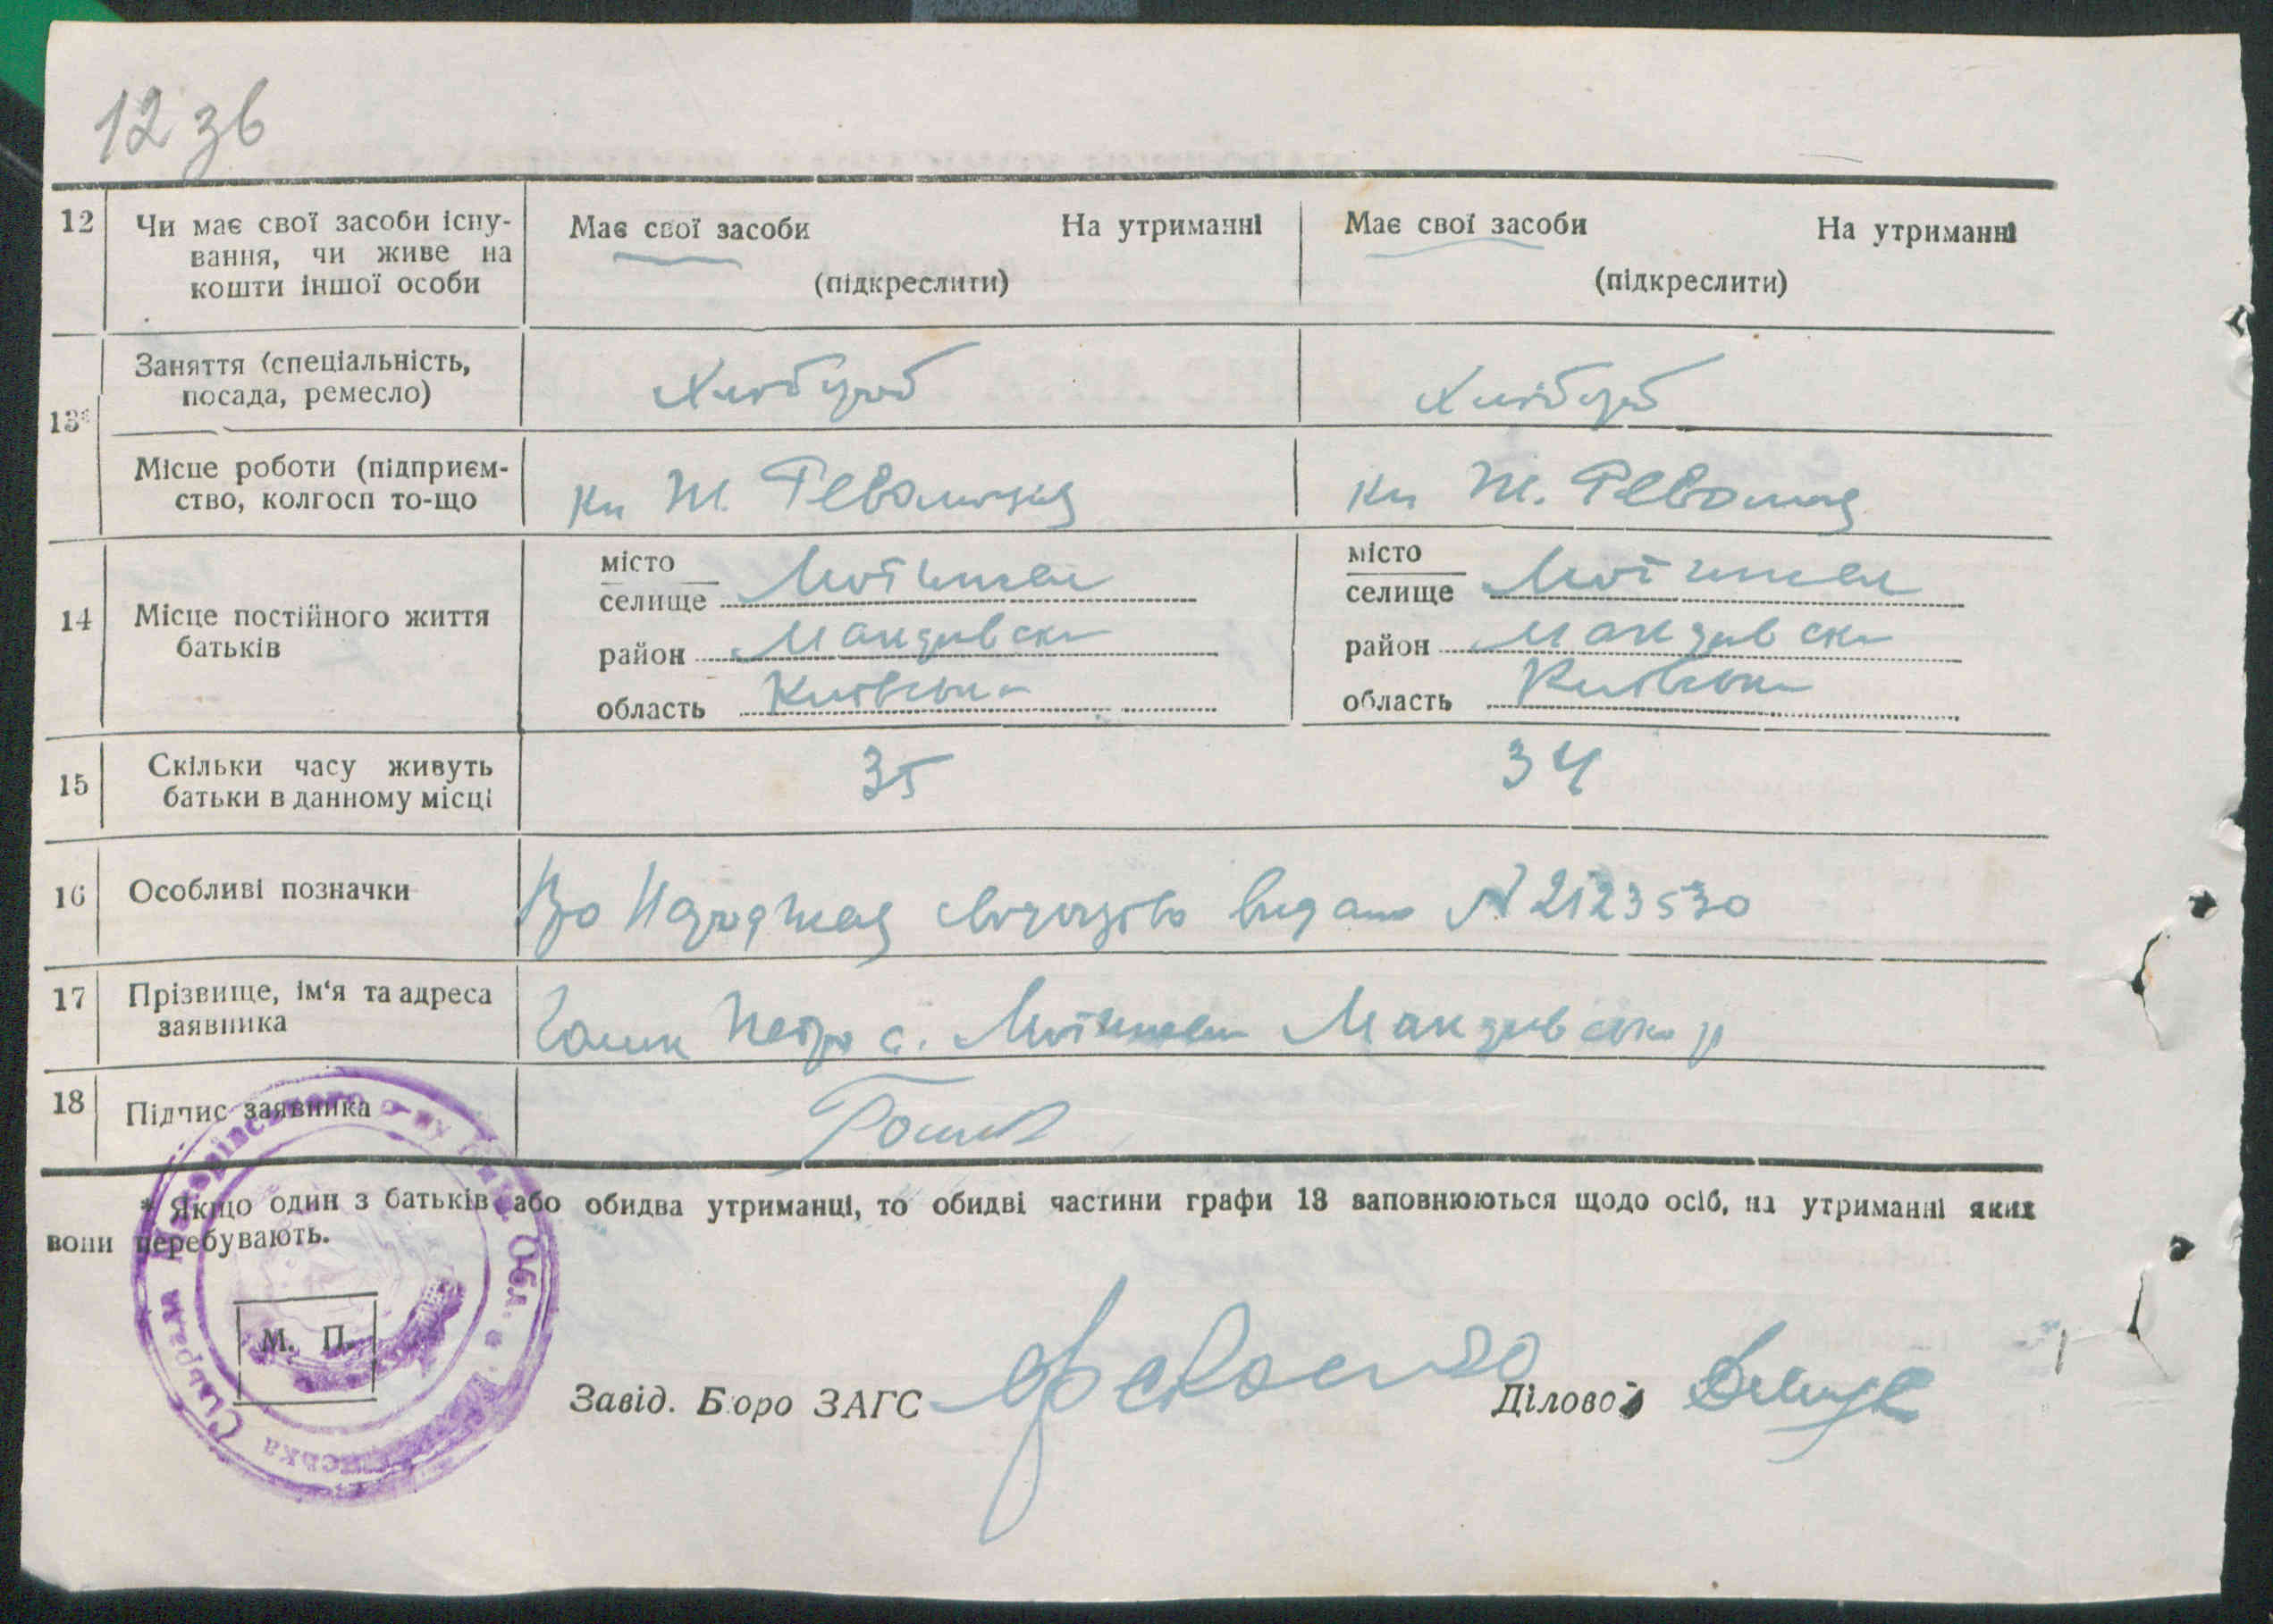 12 зв
12 Чи має свої засоби існу-
вання, чи живе на
кошти іншої особи
Має свої засоби На утриманні
(підкреслити)
Має свої засоби На утриманні
(підкреслити)
13*
Заняття (спеціальність,
посада, ремесло)
Хлібороб
Хлібороб
Місце роботи (підприєм-
ство, колгосп то-що
Ж. Революція
Ж. Революція
14 Місце постійного життя
батьків
місто
селище Мотижен
район Макарівськ
область Київська
місто
селище Мотижен
район Макарівськ
область Київська
15 Скільки часу живуть
батьки в данному місці
35
34
16 Особливі позначки
Про Народження свідоцтво видано № 2123530
17 Прізвище, ім‘я та адреса
заявника
Петро с. Мотижен Макарівськ р
18 Підпис заявника
* Якщо один з батьків або обидва утриманці, то обидві частини графи 13 заповнюються щодо осіб, на утриманні яких
вони перебувають.
М. П.
Сільрада Обл.
Завід. Бюро ЗАГС
Діловод